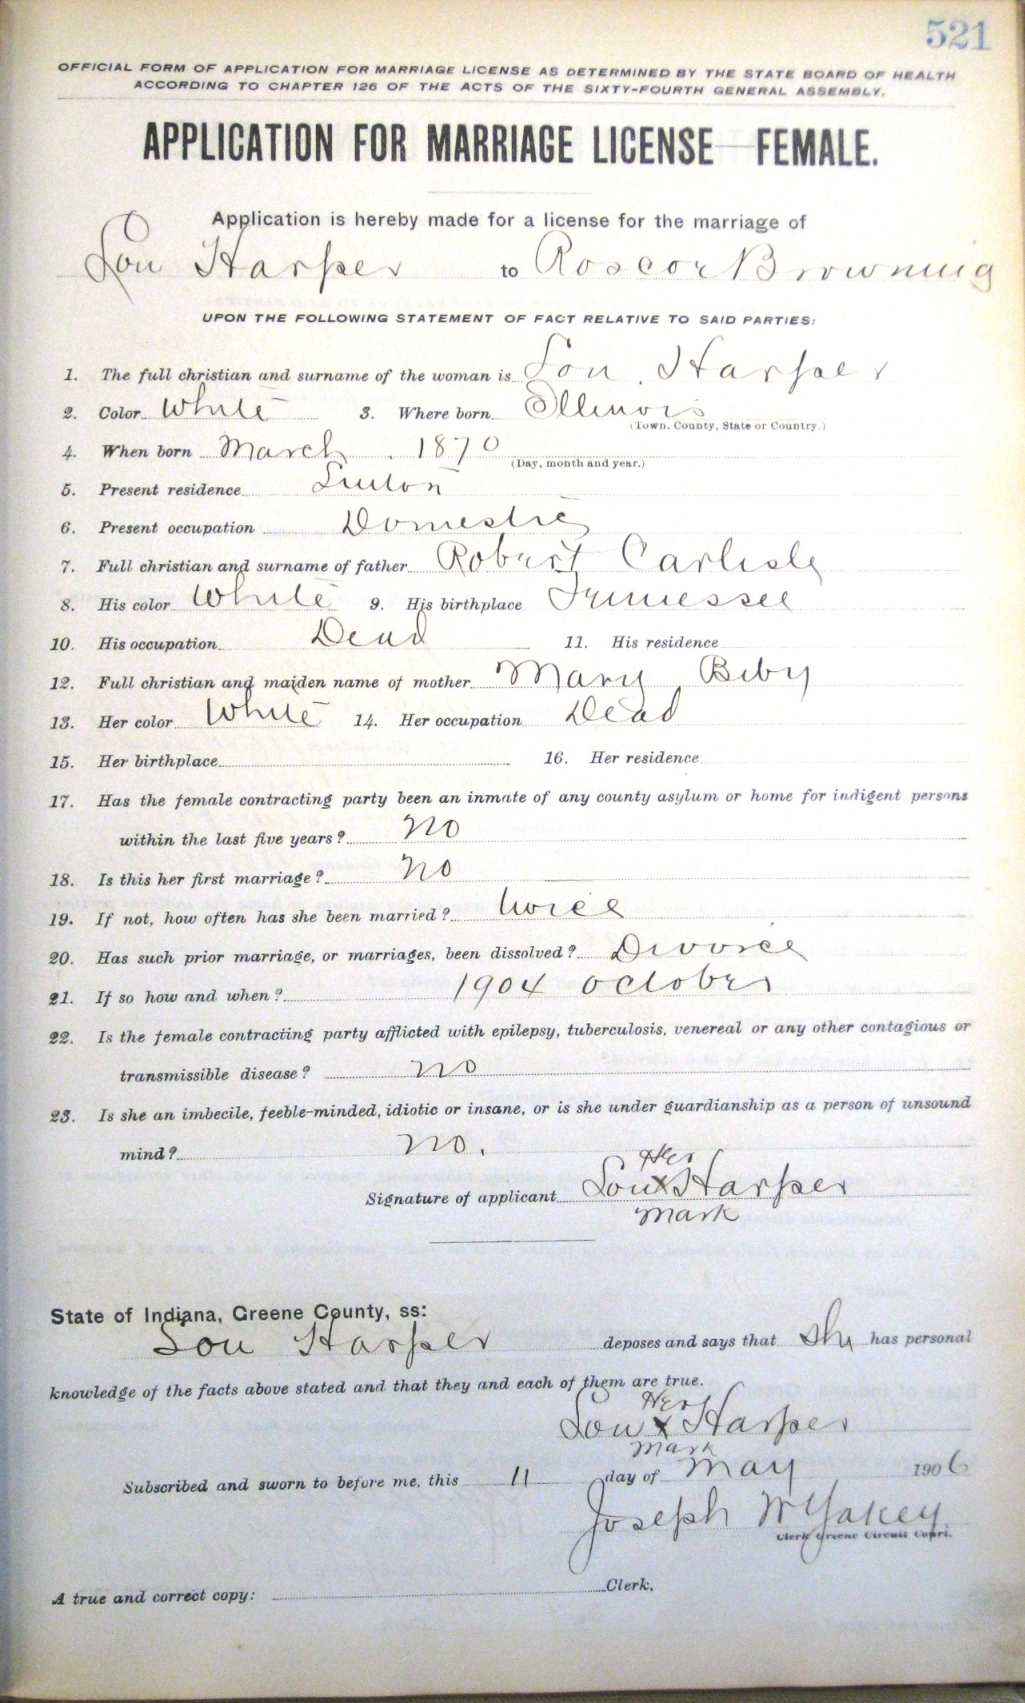 521
OFFICIAL FORM OF APPLICATION FOR MARRIAGE LICENSE AS DETERMINED BY THE STATE BOARD OF HEALTH
ACCORDING TO CHAPTER 126 OF THE ACTS OF THE SIXTY-FOURTH GENERAL ASSEMBLY.
APPLICATION FOR MARRIAGE LICENSE FEMALE.
Application is hereby made for a license for the marriage of
Lou Harper to Roscoe Browning
UPON THE FOLLOWING STATEMENT OF FACT RELATIVE TO SAID PARTIES:
1. The full christian and surname of the woman is Lou Harper
2. Color White 3. Where born Illinois
(Town, County, State or Country.)
4. When born March 1870
(Day, month and year.)
5. Present residence Linton
6. Present occupation Domestic
7. Full christian and surname of father Robert Carlisle
8. His color White 9. His birthplace Tennessee
10. His occupation Dead 11. His residence
12. Full christian and maiden name of mother Mary Biby
13. Her color White 14. Her occupation Dead
15. Her birthplace 16. Her residence
17. Has the female contracting party been an inmate of any county asylum or home for indigent persons
within the last five years? no
18. Is this her first marriage? no
19. If not, how often has she been married? twice
20. Has such prior marriage, or marriages, been dissolved? Divorce
21. If so how and when? 1904 october
22. Is the female contracting party afflicted with epilepsy, tuberculosis, venereal or any other contagious or
transmissible disease? no
23. Is she an imbecile, feeble-minded, idiotic or insane, or is she under guardianship as a person of unsound
mind? no.
Her
Signature of applicant Lou X Harper
mark
State of Indiana, Greene County, ss:
Lou Harper deposes and says that she has personal
knowledge of the facts above stated and that they and each of them are true.
Her
Lou X Harper
mark
Subscribed and sworn to before me, this 11 day of May 1906
Joseph W Yakey
Clerk Greene Circuit Court.
A true and correct copy: Clerk.